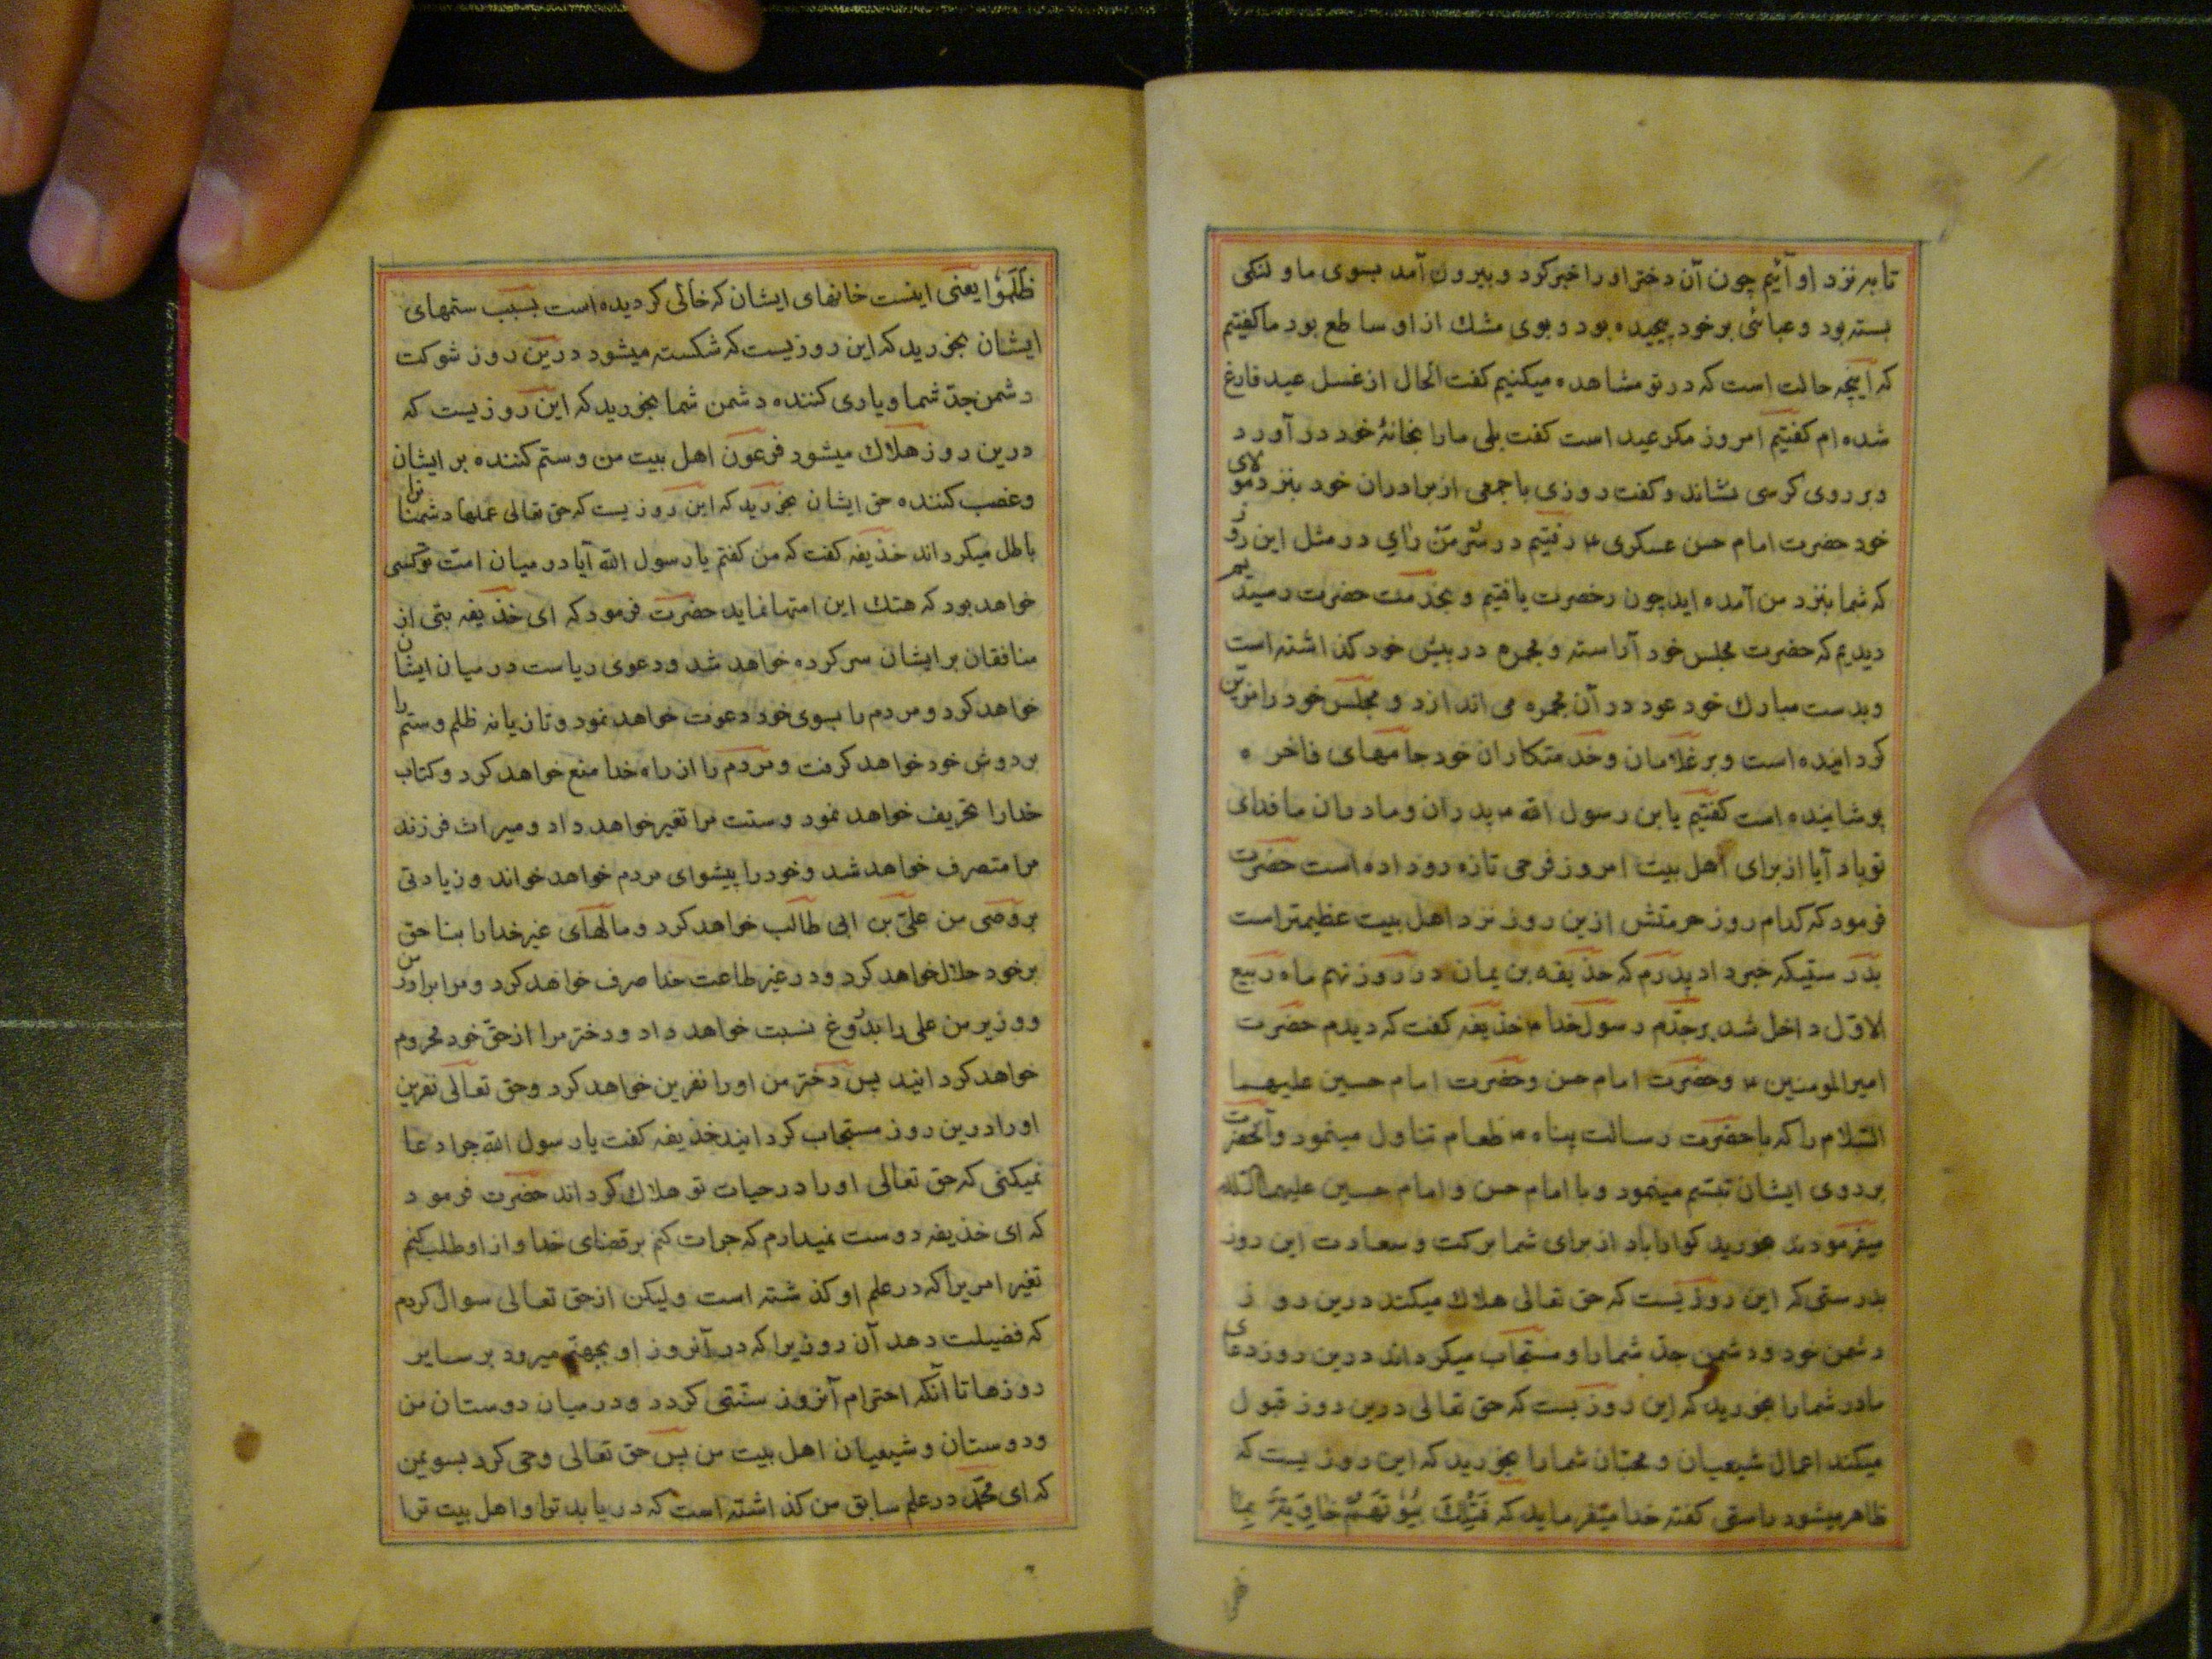 تا به نزد او آئیم چون آن دختر او را خبر کرد و بیرون آمد بسوی ما و لنکی
بسته بود و عبائی بر خود پیچیده بود و بوی مشك از او ساطع بود ما کفتیم
که اینچه حالت است که در تو مشاهده میکنیم کفت الحال از غسل عید فارغ
شده ام کفتیم امروز مکر عید است کفت بلی ما را بخانهٔ خود در آورد
و بر روی کرسی نشاند و کفت روزی با جمعی از برادران خود بنزد مولای
خود حضرت امام حسن عسکری ۴ رفتیم در سُرّ مَنْ رَایٰ در مثل این روز
که شما بنزد من آمده اید چون رخصت یافتیم و بخدمت حضرت رسیدیم
دیدیم که حضرت مجلس خود آراسته و مجمره در پیش خود کذاشته است
و بدست مبارك خود عود در آن مجمره می اندازد و مجلس خود را مزین
کردانیده است و بر غلامان و خدمتکاران خود جامهای فاخره
پوشانیده است کفتیم یابن رسول الله ۴ پدران و مادران ما فدای
تو باد آیا از برای اهل بیت امروز فرحی تازه رو داده است حضرت
فرمود که کدام روز حرمتش ازین روز نزد اهل بیت عظیمتر است
بدرستیکه خبر داد پدرم که حذیفه بن یمان در روز نهم ماه ربیع
الاوّل داخل شد بر جدّم رسول خدا ۴ حذیفه کفت که دیدم حضرت
امیر المومنین ۴ و حضرت امام حسن و حضرت امام حسین علیهما
السّلام را که با حضرت رسالت پناه ۴ طعام تناول مینمود و آنحضرت
بر روی ایشان تبسّم مینمود و با امام حسن و امام حسین علیهما السّلام
میفرمودند بخورید کوارا باد از برای شما برکت و سعادت این روز
بدرستی که این روزیست که حق تعالی هلاك میکند درین روز
دشمن خود و دشمن جدّ شما را و مستجاب میکرداند درین روز دعای
مادر شما را بخورید که این روزیست که حق تعالی درین روز قبول
میکند اعمال شیعیان و محبّان شما را بخورید که این روزیست که
ظاهر میشود راستی کفته خدا میفرماید که فَتِلْكَ بُیُوتُهُمْ خَاوِیَةً بِمَا
ظَلَمُوْا یعنی اینست خانهای ایشان که خالی کردیده است بسبب ستمهای
ایشان بخورید که این روزیست که شکسته میشود درین روز شوکت
دشمن جدّ شما و یاری کننده دشمن شما بخورید که این روزیست که
درین روز هلاك میشود فرعون اهل بیت من و ستم کننده بر ایشان
و غصب کننده حق ایشان بخورید که این روزیست که حق تعالی عملها دشمنانرا
باطل میکرداند خذیفه کفت که من کفتم یا رسول الله آیا در میان امّت تو کسی
خواهد بود که هتك این امتها نماید حضرت فرمود که ای خذیفه بتی از
منافقان بر ایشان سرکرده خواهد شد و دعوی ریاست در میان ایشان
خواهد کرد و مردم را بسوی خود دعوت خواهد نمود و تازیانه ظلم و ستم را
بر دوش خود خواهد کرفت و مردم را از راه خدا منع خواهد کرد و کتاب
خدا را تحریف خواهد نمود و سنت مرا تغیر خواهد داد و میراث فرزند
مرا متصرف خواهد شد و خود را پیشوای مردم خواهد خواند و زیادتی
بر وصی من علیّ بن ابی طالب خواهد کرد و مالهای غیر خدا را بنا حق
بر خود حلال خواهد کرد و در غیر طاعت خدا صرف خواهد کرد و مرا برادر من
و وزیر من علی را بدروغ نسبت خواهد داد و دختر مرا از حقّ خود محروم
خواهد کردانید پس دختر من او را نفرین خواهد کرد و حق تعالی نفرین
او را درین روز مستجاب کرداند خذیفه کفت یا رسول الله چرا دعا
نمیکنی که حق تعالی او را در حیات تو هلاك کرداند حضرت فرمود
که ای خذیفه دوست نمیدارم که جرات کنم بر قضای خدا و از او طلب کنم
تغیر امریرا که در علم او کذشته است ولیکن از حق تعالی سوال کردم
که فضیلت دهد آن روزیرا که در آنروز او بجهنّم میرود بر سایر
روزها تا آنکه احترام آنروز سنّتی کردد و در میان دوستان من
و دوستان و شیعیان اهل بیت من پس حق تعالی وحی کرد بسوی من
که ای محمّد در علم سابق من کذاشته است که دریابد ترا و اهل بیت ترا